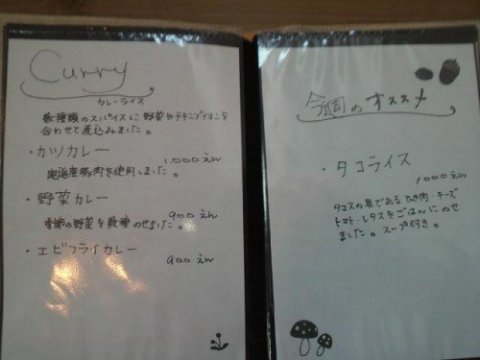 Curry
カレーライス
数種類のスパイスに野菜やチキンブイヨンを
合わせて煮込みました。
・カツカレー
1,000えん
産豚肉を使用しました。
・野菜カレー
900えん
季節の野菜を数種のせました。
・エビフライカレー
900えん
今週のオススメ
・タコライス
1000えん
タコスの具であるひき肉・チーズ
トマト・レタスをごはんにのせ
ました。スープ付き。